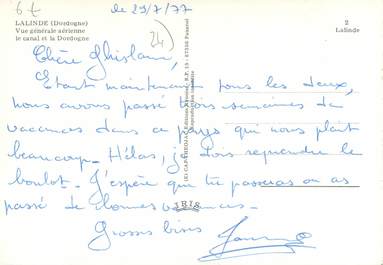 6f
le 29/7/77
LALINDE (Dordogne)
Vue générale aérienne
le canal et la Dordogne
24
2
Lalinde
Chère Ghislaine,
Etant maintenant tous les deux,
nous avons passé trois semaines de
vacances dans ce pays qui nous plait
beaucoup. Hélas, je dois reprendre le
boulot. J'espère que tu passeras ou as
passé de bonnes vacances.
IRIS
Grosses bises